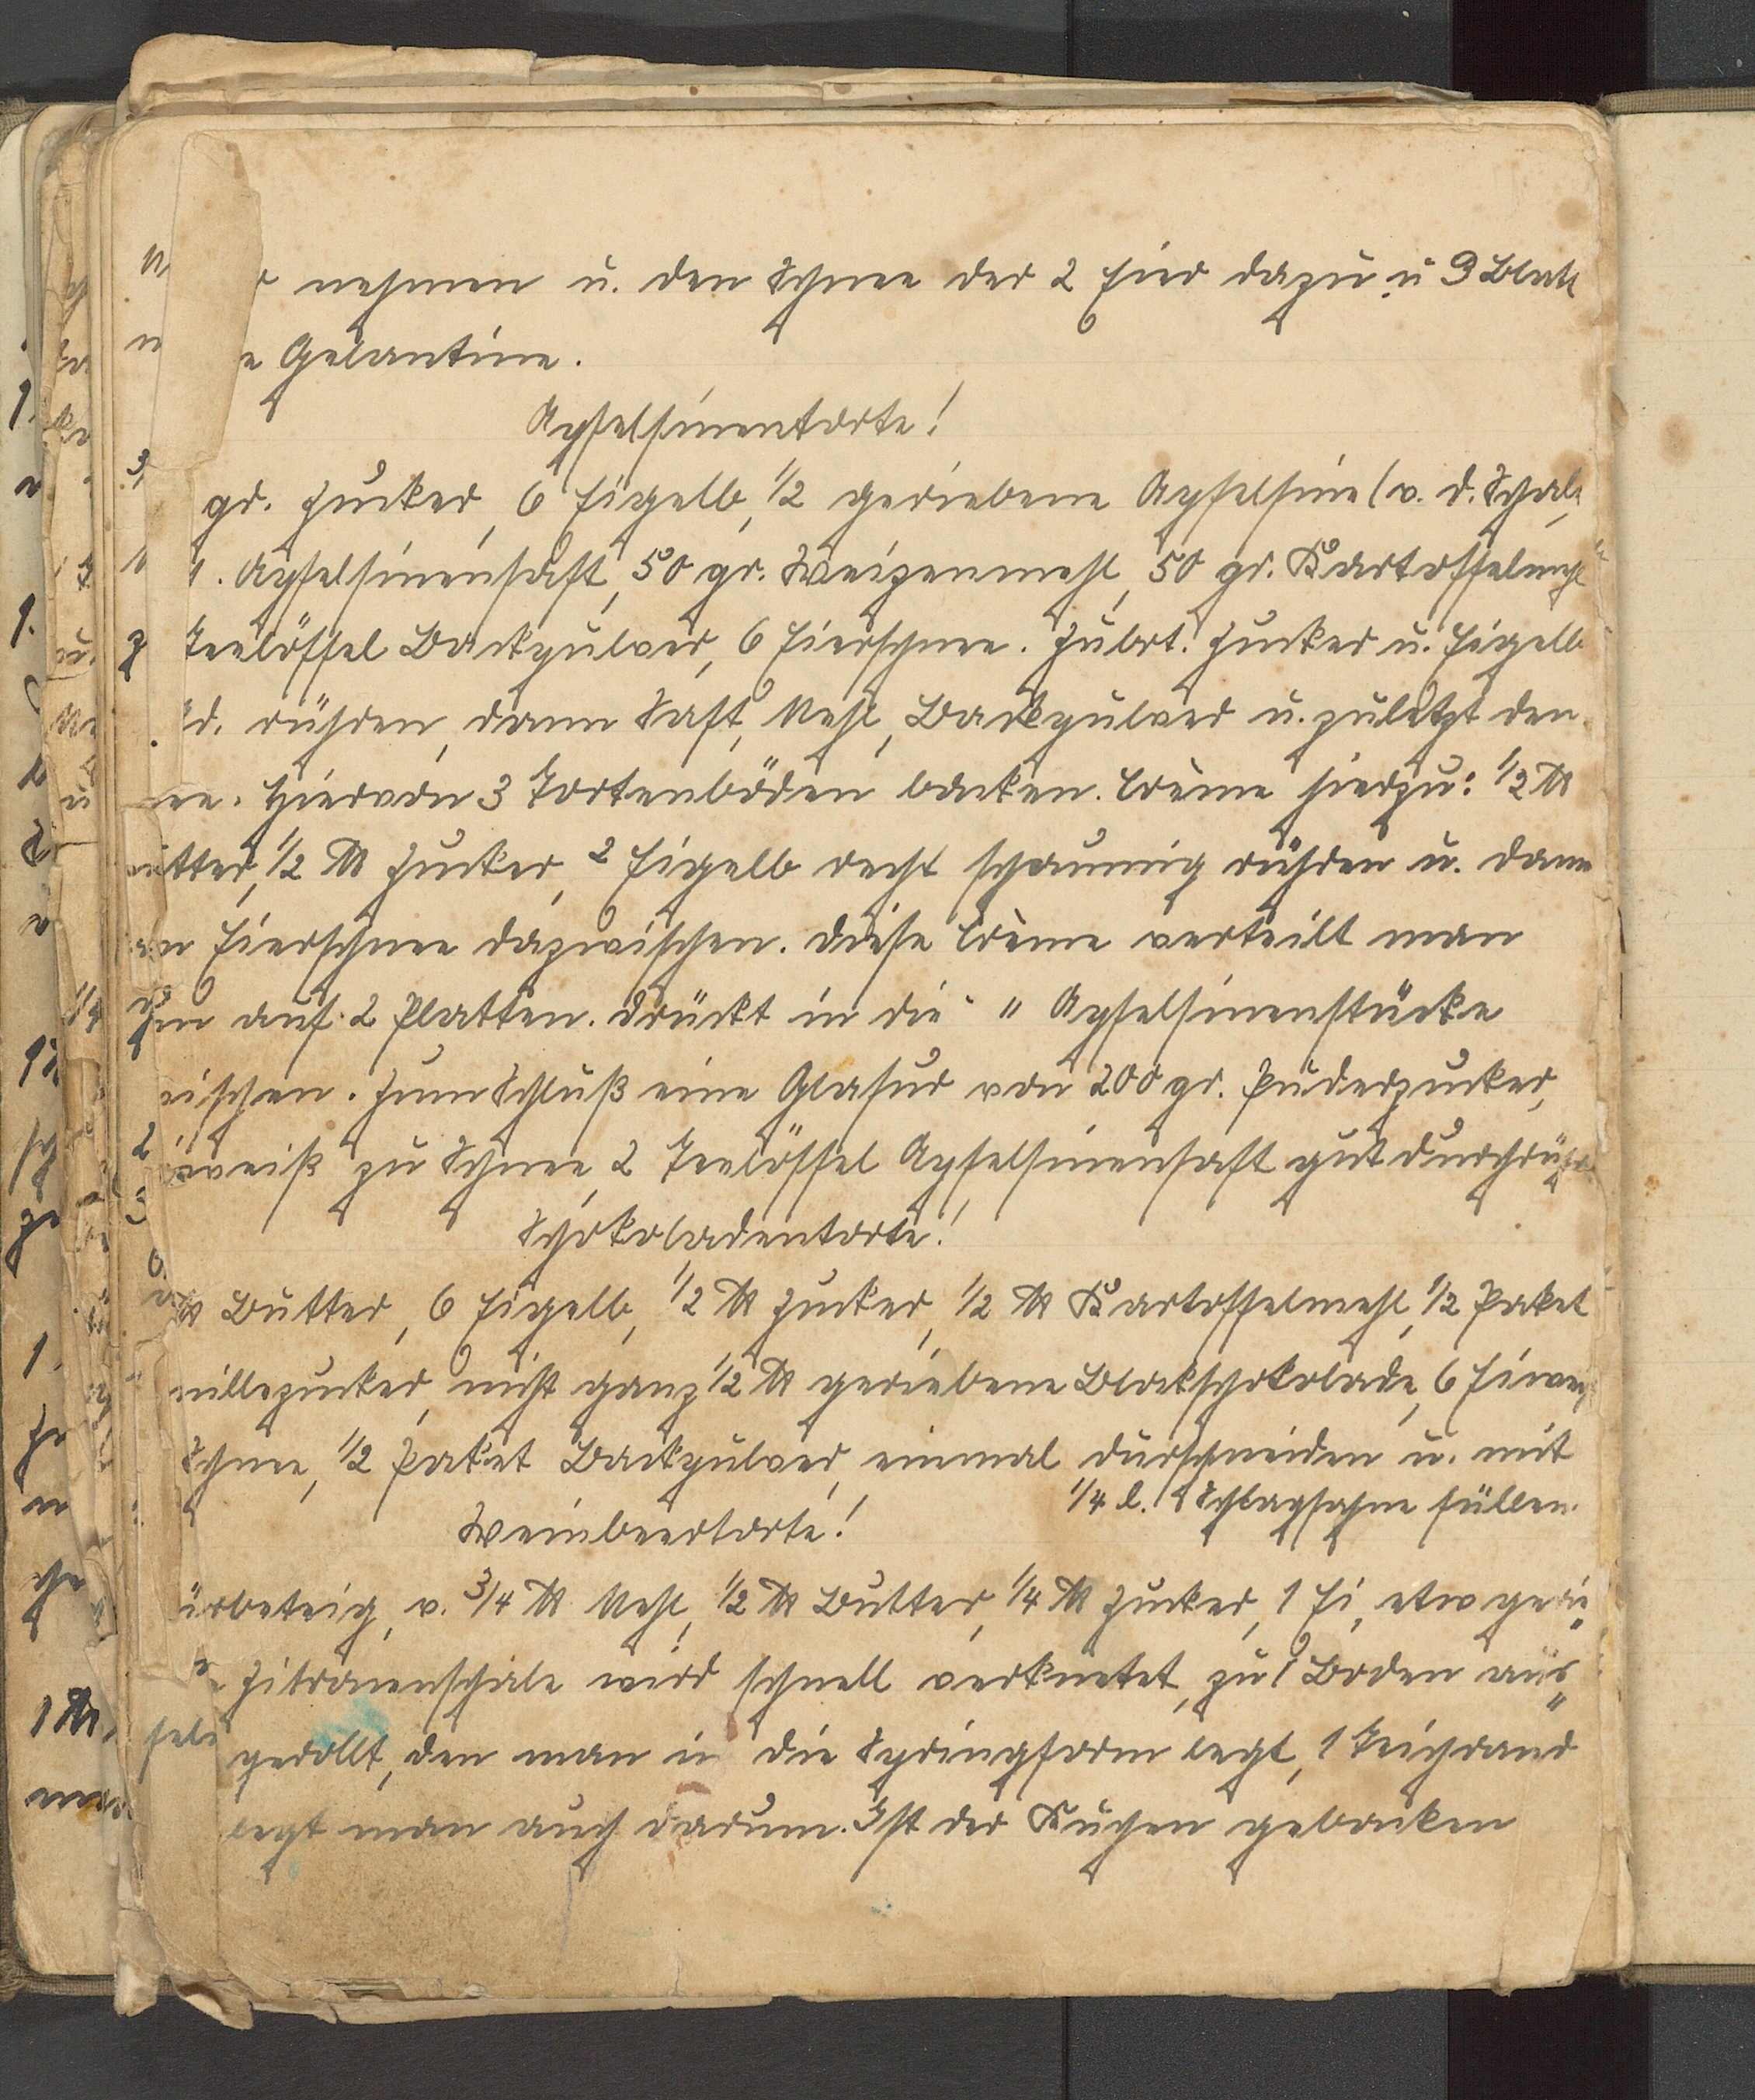 nehmen u. den Schnee der 2 Eier dazu u 3 Blatt
Gelantine.
Apfelsinentorte!
gr. Zucker, 6 Eigelb, 1/2 geriebene Apfelsine (v. d. Schale
Apfelsinensaft, 50 gr. Weizenmehl, 50 gr. Kartoffelmehl
Teelöffel Backpulver, 6 Eierschnee. Zubrt. Zucker u. Eigelb
rühren, dann Saft, Mehl, Backpulver u. zuletzt den
Hiervon 3 Tortenböden backen. Crème hierzu: 1/2 ℔
utter, 1/2 ℔ Zucker, 2 Eigelb recht schaumig rühren u. dann
Eierschnee dazwischen. Diese Crème verteilt man
auf 2 Platten. Drückt in die " Apfelsinenstücke
ischen. Zum Schluß eine Glasur von 200 gr. Puderzucker,
weiß zu Schnee, 2 Teelöffel Apfelsinensaft gut durchrühr
Schokoladentorte!
℔ Butter, 6 Eigelb, 1/2 ℔ Zucker, 1/2 ℔ Kartoffelmehl, 1/2 Paket
nillezucker, nicht ganz 1/2 ℔ geriebene Blockschokolade, 6 Eiweiß
Schnee, 1/2 Paket Backpulver, einmal durschneiden u. mit
1/4 l. Schlagsahne füllen.
Weinbeertorte!
ürbeteig, v. 3/4 ℔ Mehl, 1/2 ℔ Butter, 1/4 ℔ Zucker, 1 Ei, etw gerie
Zitronenschale wird schnell verknetet, zu 1 Boden aus„
gerollt, den man in die Springform legt, 1 Teigrand
legt man auch darum. Ist der Kuchen gebacken